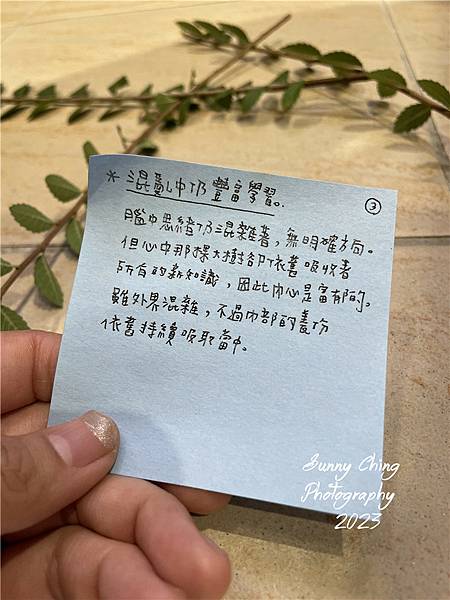 * 混亂中仍豐富學習。 ③
腦中思緒仍混雜著，無明確方向。
但心中那棵大樹卻依舊吸收著
所有的新知識，因此內心是富郁的。
雖外界混雜，不過內部的養份
依舊持續吸取當中。
Sunny Ching
Photography
2023